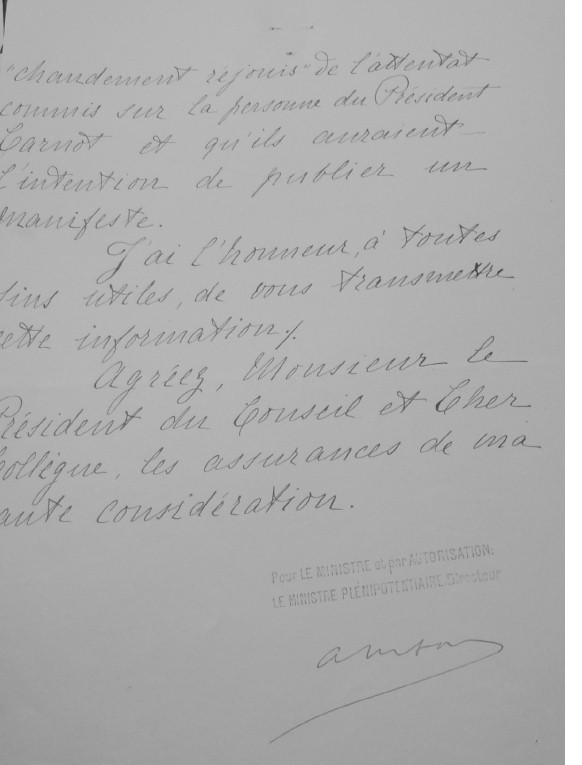 "chaudement réjouis" de l'attentat
commis sur la personne du Président
Carnot et qu'ils auraient
l'intention de publier un
manifeste.
J'ai l'honneur, à toutes
fins utiles, de vous transmettre
cette information./.
Agréez, Monsieur le
Président du Conseil et Cher
Collègue, les assurances de ma
haute considération.
Pour LE MINISTRE et par AUTORISATION:
LE MINISTRE PLÉNIPOTENTIAIRE, Directeur